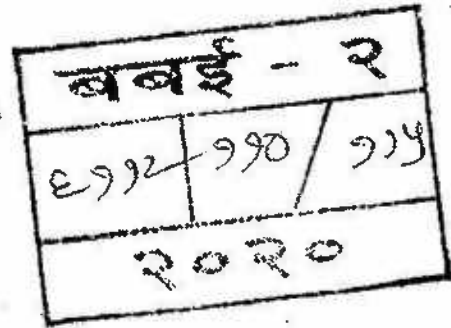 बबई - २
६११२ - ११० / ११५
२०२०